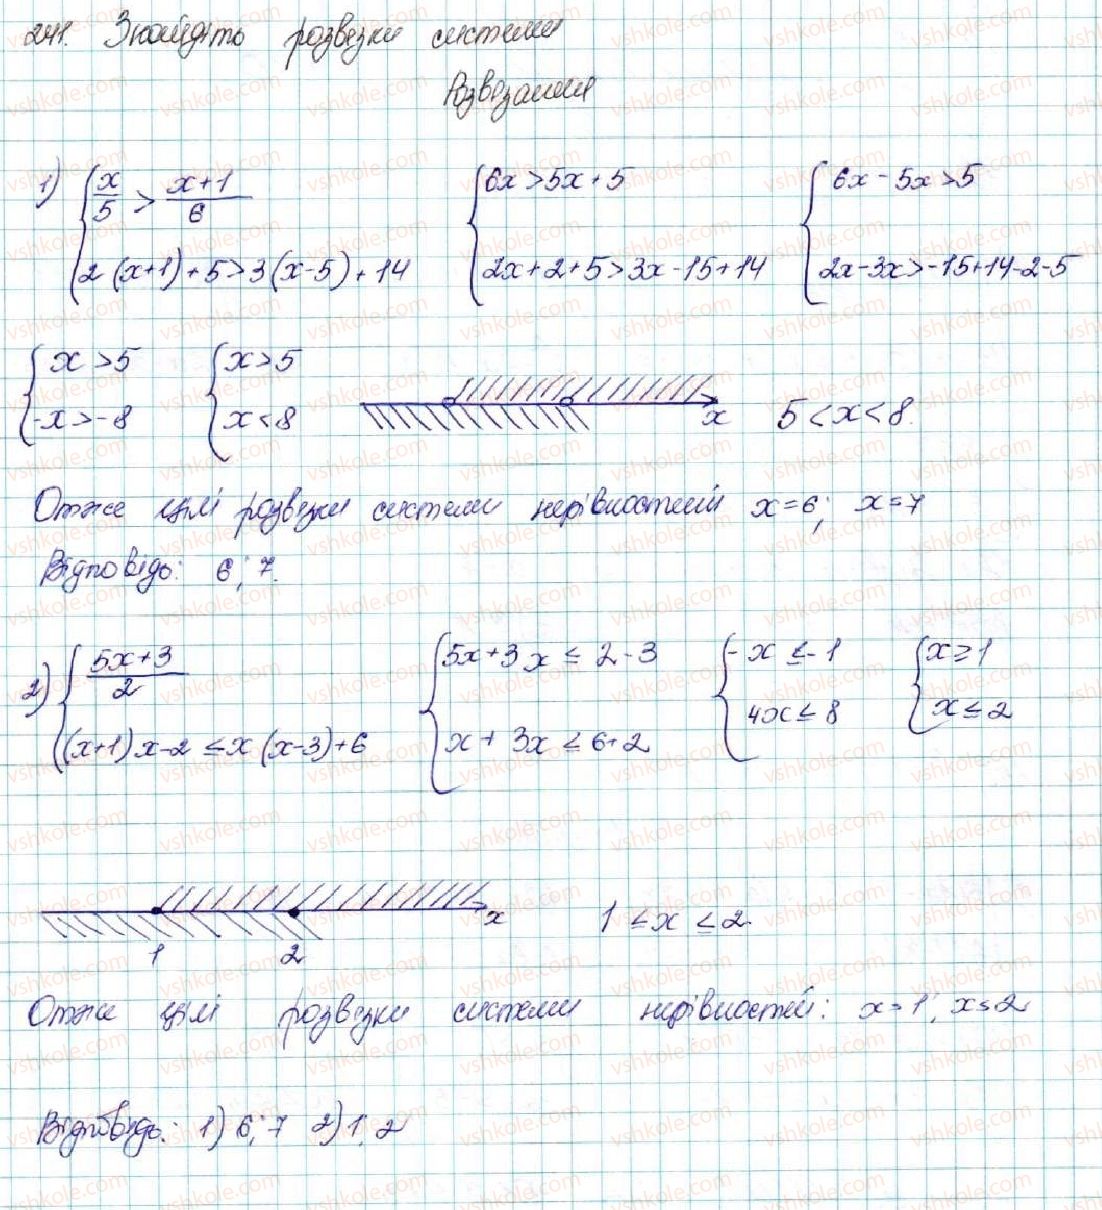 241. Знайдіть розвезки системи
Розвезання
1) { x/5 > (x+1)/6 { 6x > 5x + 5 { 6x - 5x > 5
{ 2(x+1) + 5 > 3(x-5) + 14 { 2x + 2 + 5 > 3x - 15 + 14 { 2x - 3x > -15 + 14 - 2 - 5
{ x > 5 { x > 5
{ -x > -8 { x < 8 x 5 < x < 8.
Отже цілі розвезки системи нерівностей x = 6; x = 7
Відповідь: 6; 7.
2) { (5x+3)/2 { 5x + 3x ≤ 2 - 3 { -x ≤ -1 { x ≥ 1
{ (x+1)x - 2 ≤ x(x-3) + 6 { x + 3x ≤ 6 + 2 { 4x ≤ 8 { x ≤ 2
x 1 ≤ x ≤ 2
1 2
Отже цілі розвезки системи нерівностей: x = 1; x = 2
Відповідь: 1) 6; 7 2) 1, 2
vshkole.com